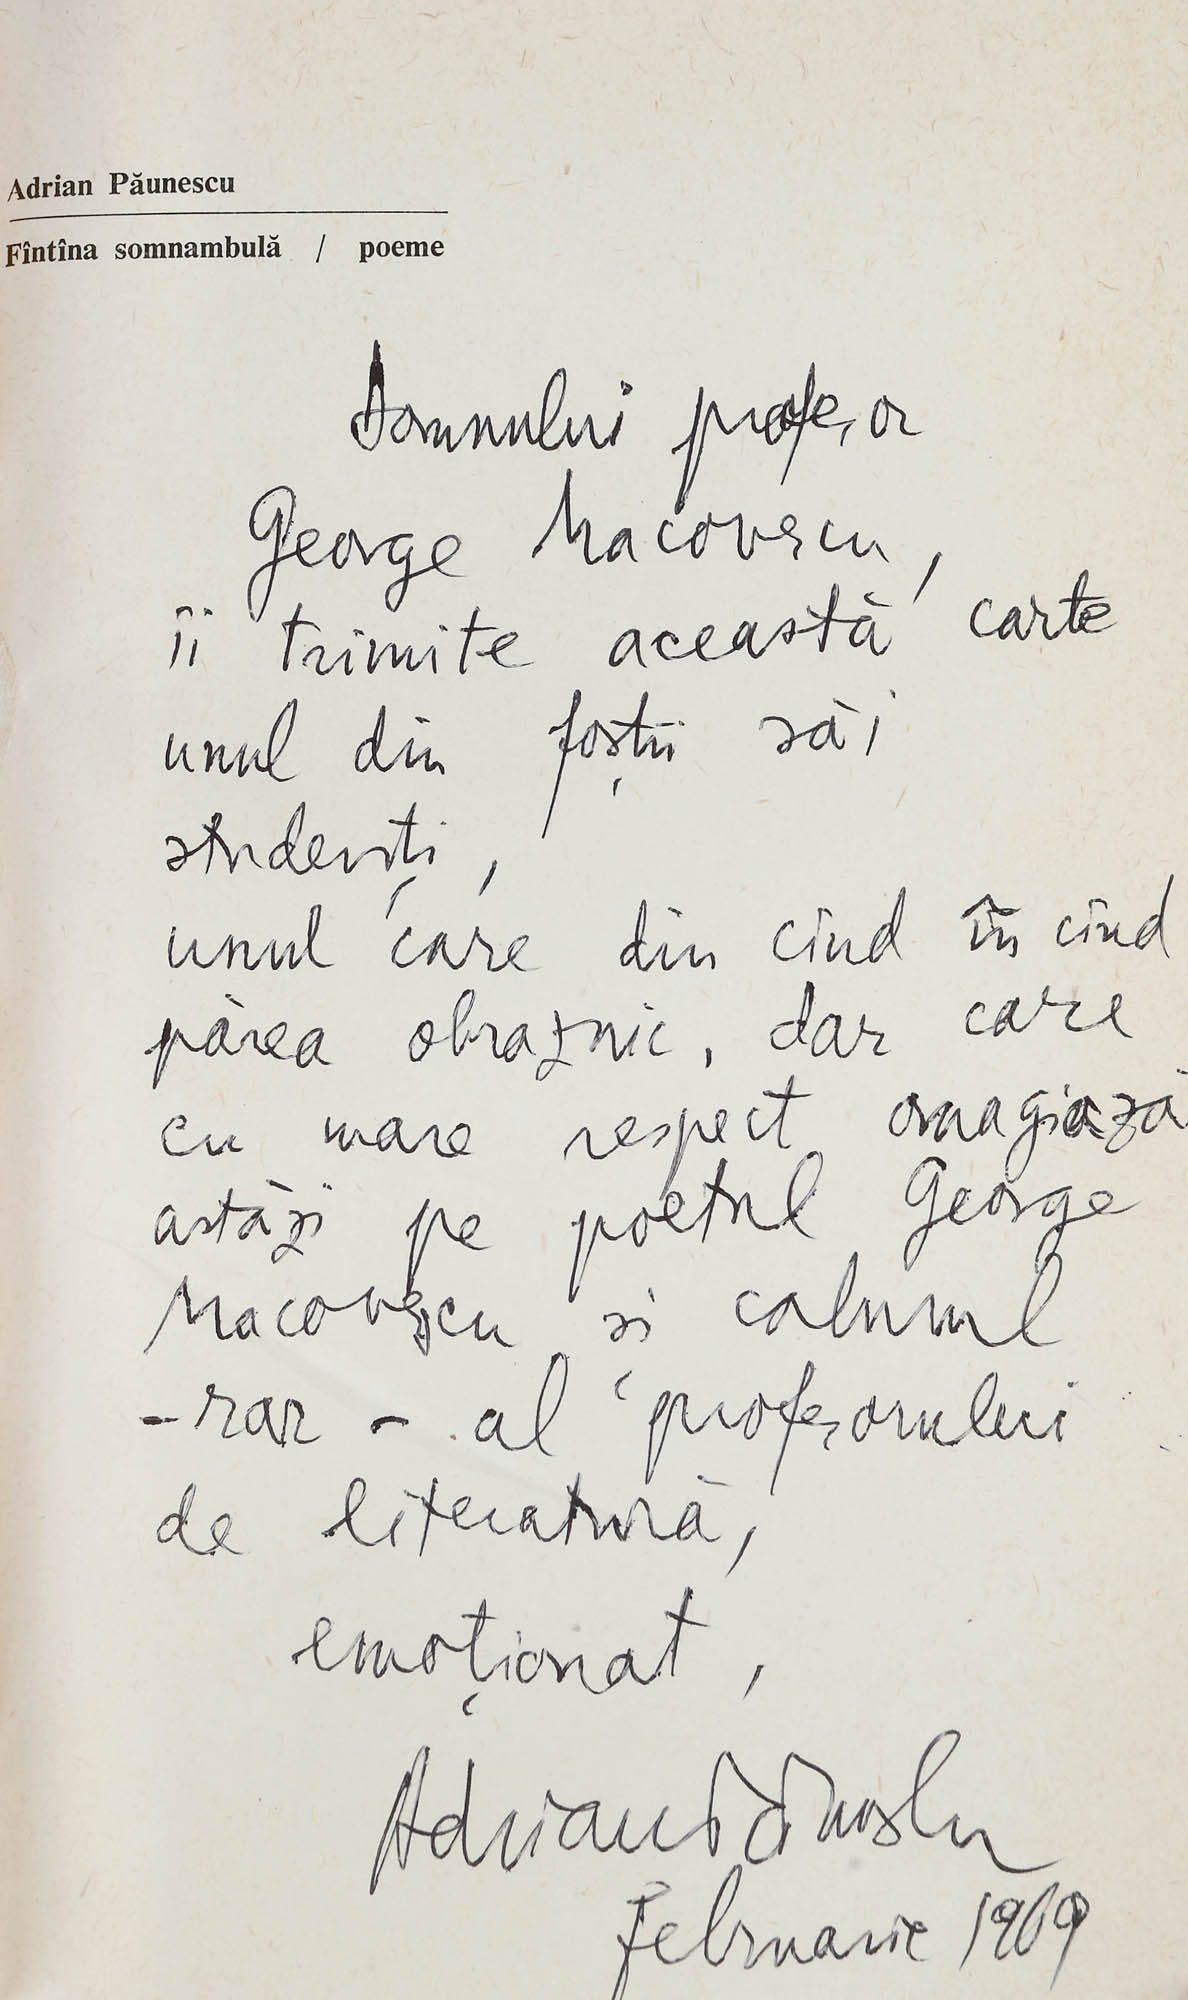 Adrian Păunescu
Fîntîna somnambulă / poeme
Domnului profesor
George Macovescu,
îi trimite această carte
unul din foștii săi
studenți,
unul care din cînd în cînd
părea obraznic, dar care
cu mare respect omagiază
astăzi pe poetul George
Macovescu și calmul
- rar - al profesorului
de literatură,
emoționat,
Adrian Păunescu
Februarie 1969